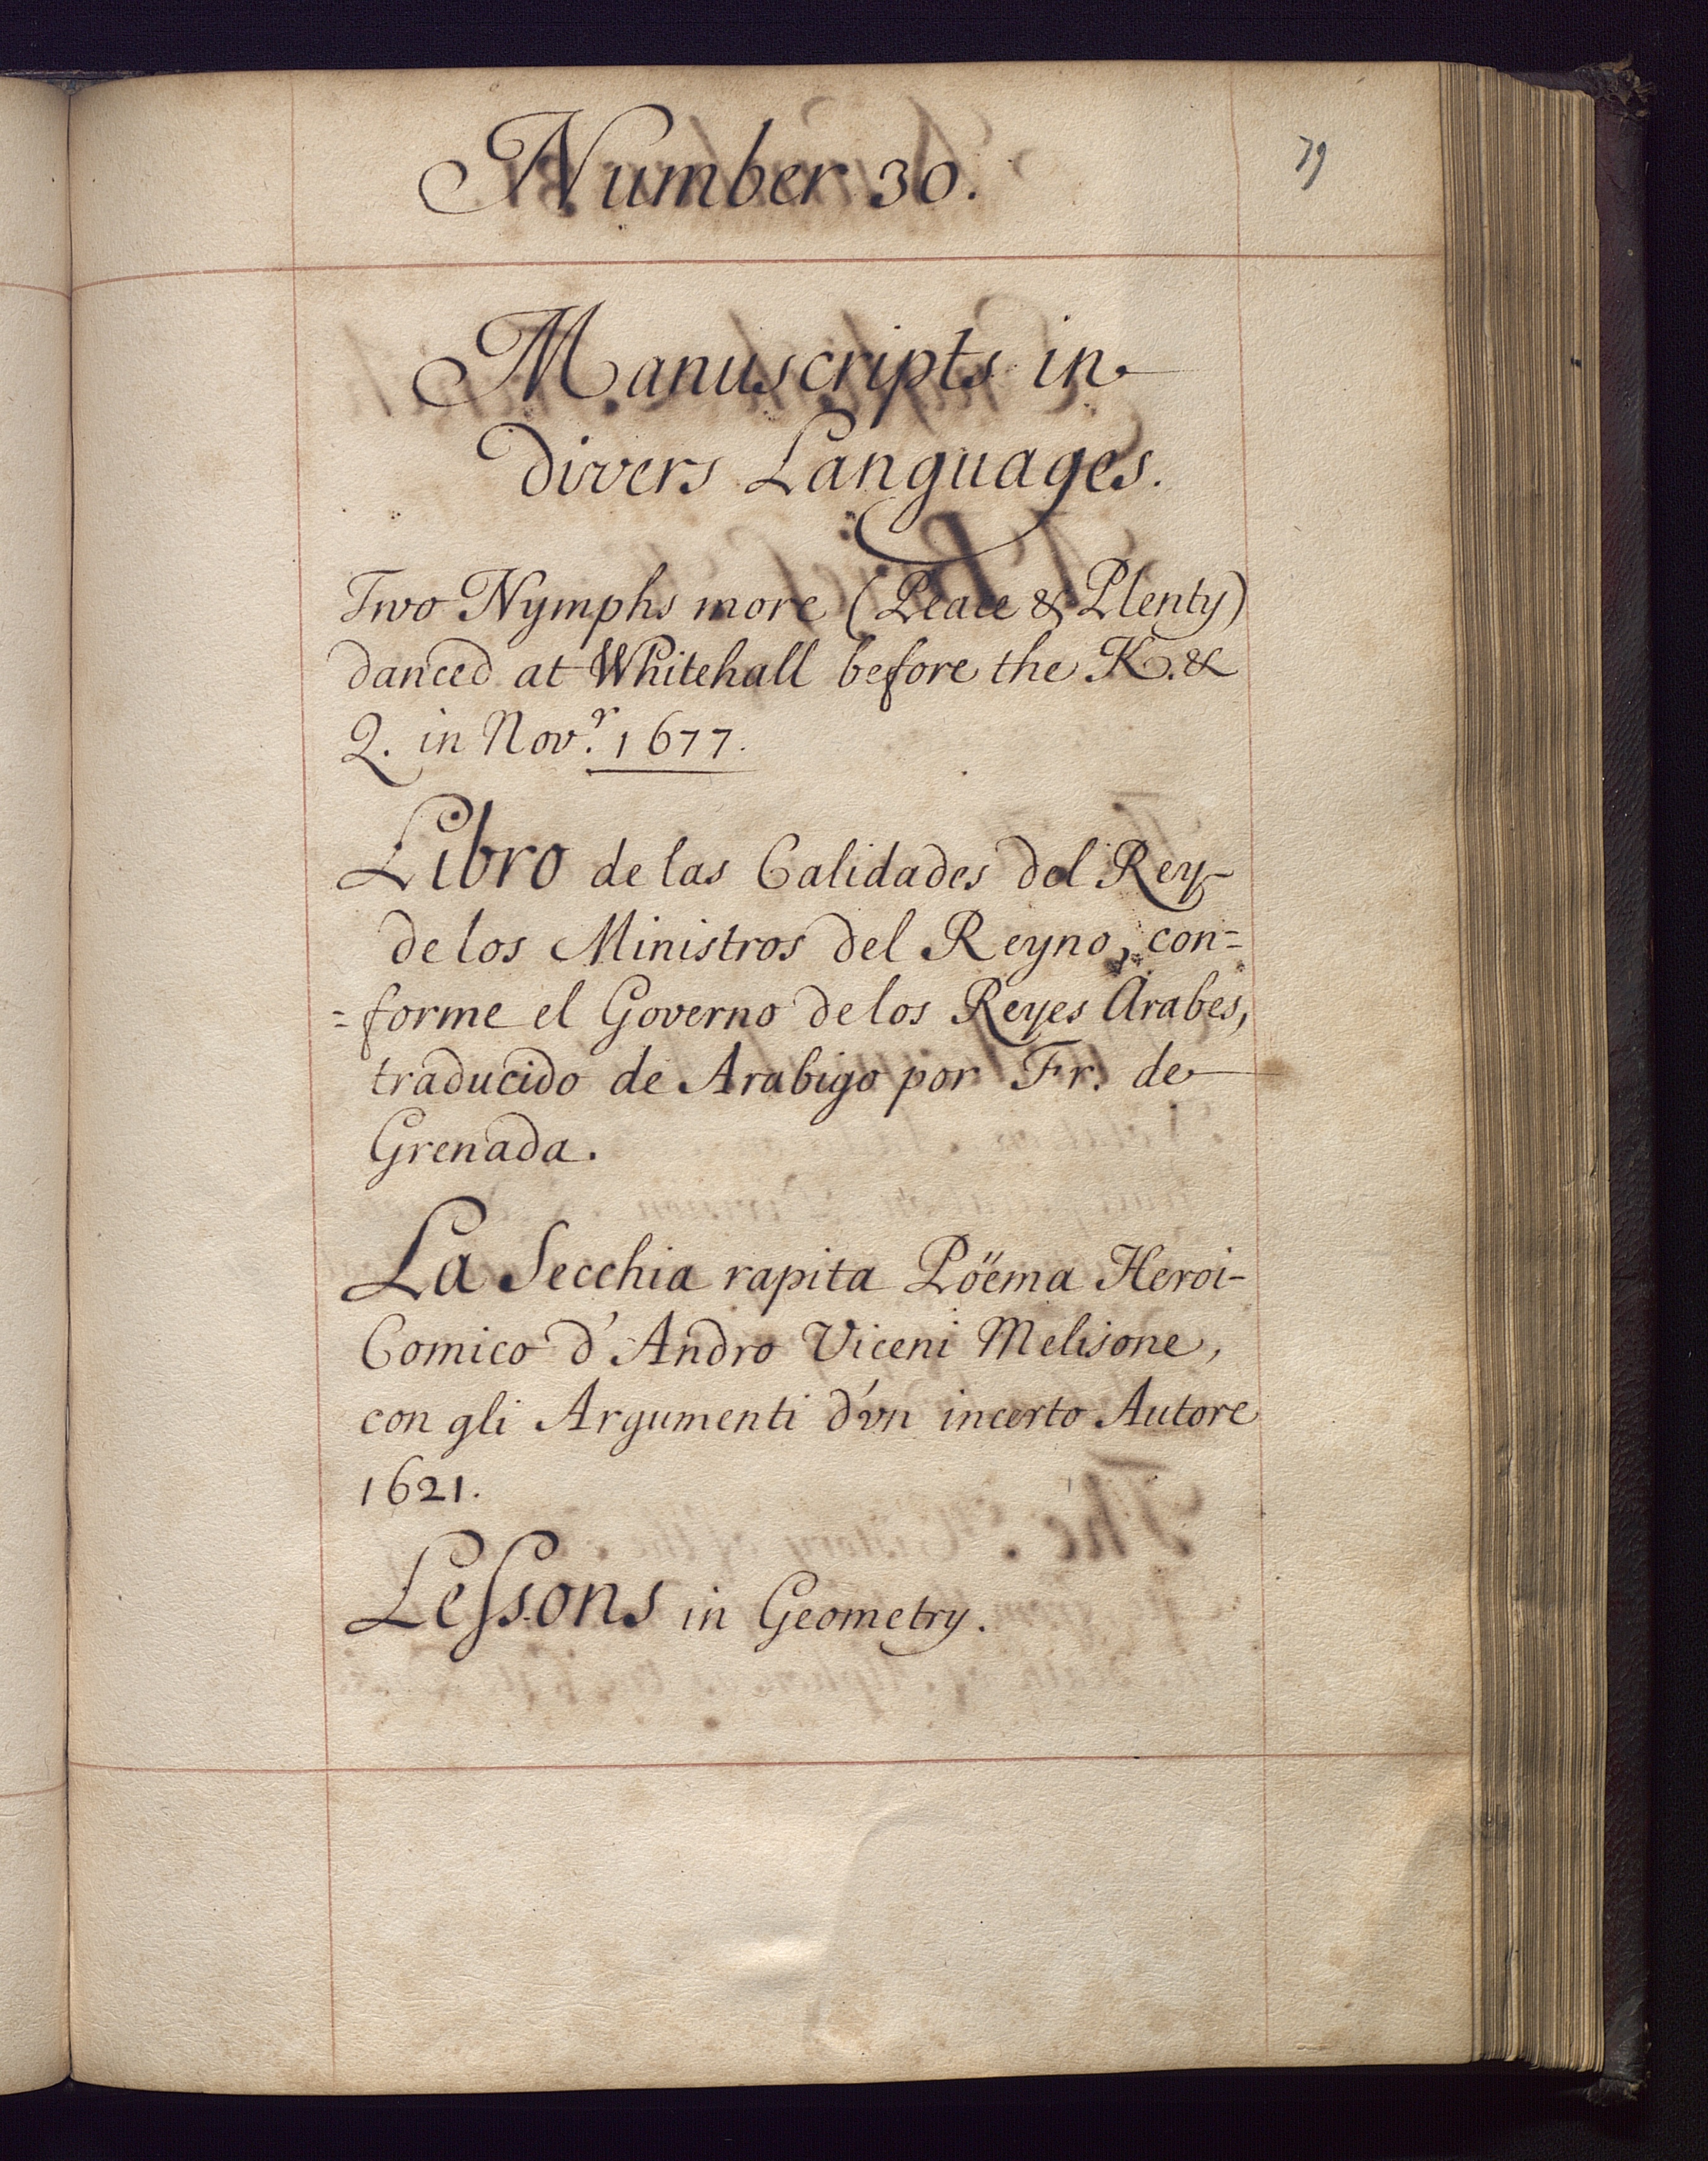 Number 30.
79
Manuscripts in
divers Languages.
Two Nymphs more (Peace & Plenty)
danced at Whitehall before the K. &
Q. in Nov.r 1677.
Libro de las Calidades del Rey
de los Ministros del Reyno, con=
=forme el Governo de los Reyes Arabes,
traducido de Arabigo por Fr. de
Grenada.
La Secchia rapita Pöema Heroi-
Comico d'Andro Viceni Melisone,
con gli Argumenti d'vn incerto Autore
1621.
Leſsons in Geometry.